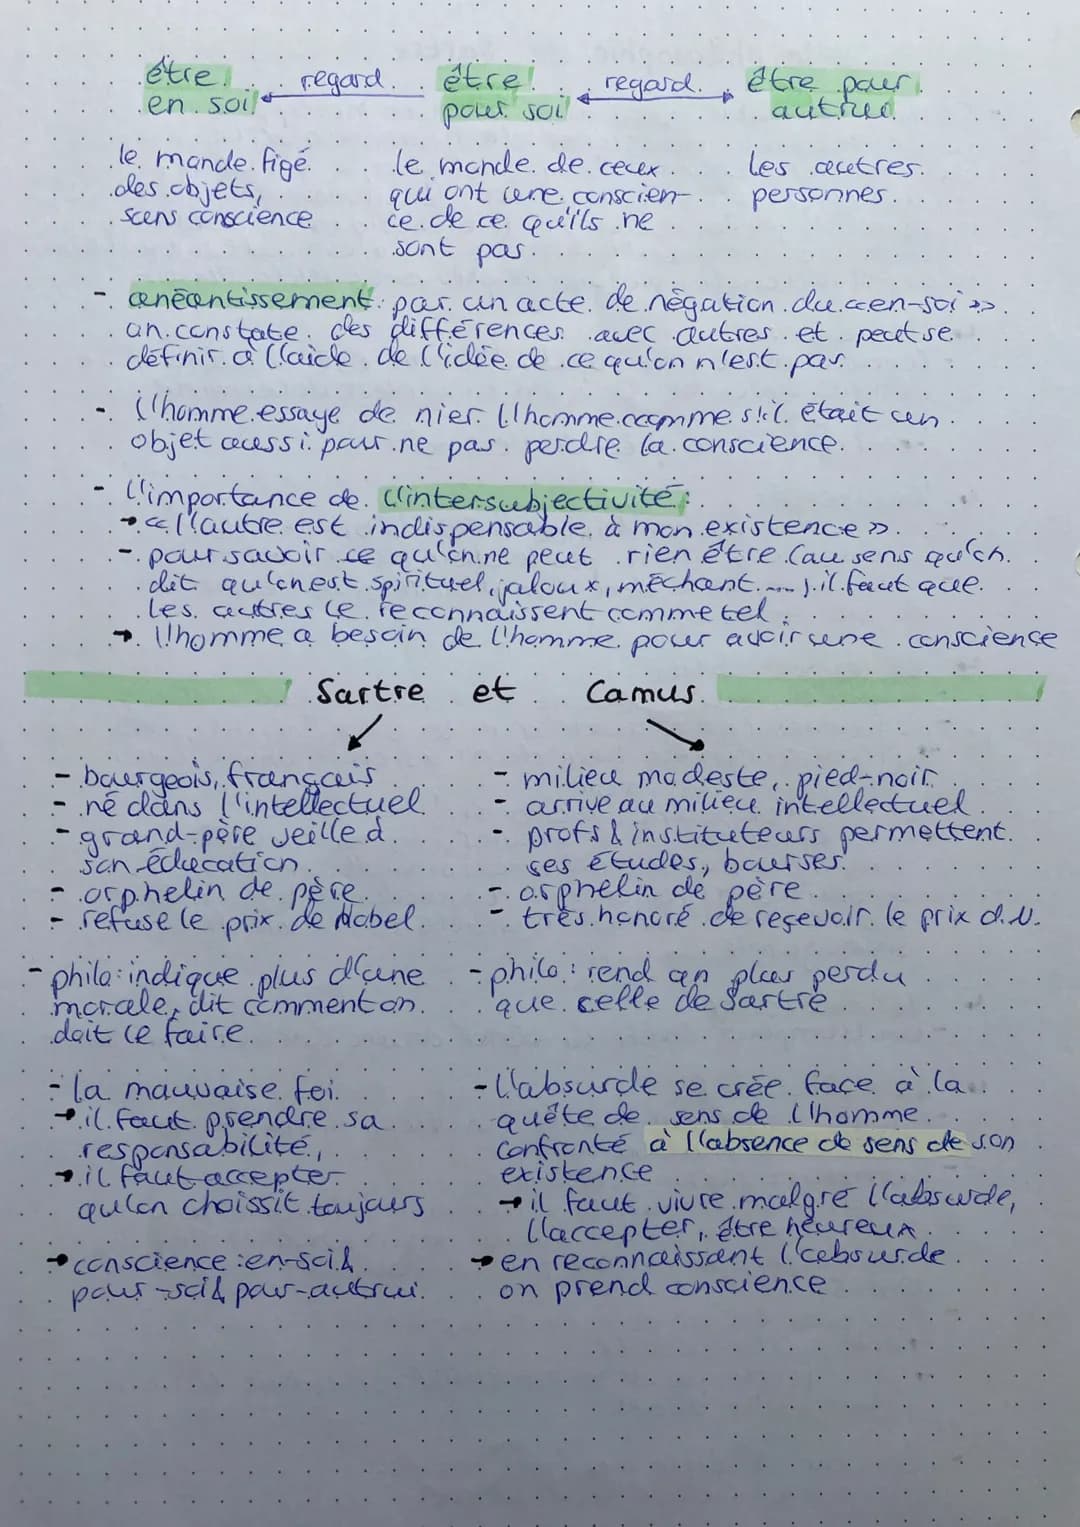 être regard être regard être pour
en soi pour soi autrui
le monde figé le monde de ceux les autres
des objets, qui ont une conscien- personnes
sans conscience ce de ce qu'ils ne
sont pas
- anéantissement par un acte de négation du «en-soi»
on constate des différences avec autres et peut se
définir à l'aide de l'idée de ce qu'on n'est pas
- l'homme essaye de nier l'homme comme s'il était un
objet aussi pour ne pas perdre la conscience.
- l'importance de l'intersubjectivité:
→ «l'autre est indispensable à mon existence»
- pour savoir ce qu'on ne peut rien être (au sens qu'on
dit qu'on est spirituel, jaloux, méchant ...) il faut que
les autres le reconnaissent comme tel
→ l'homme a besoin de l'homme pour avoir une conscience
Sartre et Camus
- bourgeois, français
- né dans l'intellectuel
- grand-père veille à
son éducation
- orphelin de père
- refuse le prix de Nobel
- philo: indique plus d'une
morale, dit comment on
doit le faire
- la mauvaise foi
→ il faut prendre sa
responsabilité,
→ il faut accepter
qu'on choissit toujours
→ conscience: en-soi &
pour-soi & pour-autrui
- milieu modeste, pied-noir
- arrive au milieu intellectuel
- profs & instituteurs permettent
ses études, bourses
- orphelin de père
- très honoré de reçevoir le prix d.N.
- philo: rend qn plus perdu
que celle de Sartre
- l'absurde se crée face à la
quête de sens de l'homme
confronté à l'absence de sens de son
existence
→ il faut vivre malgré l'absurde,
l'accepter, être heureux
→ en reconnaissant l'absurde
on prend conscience